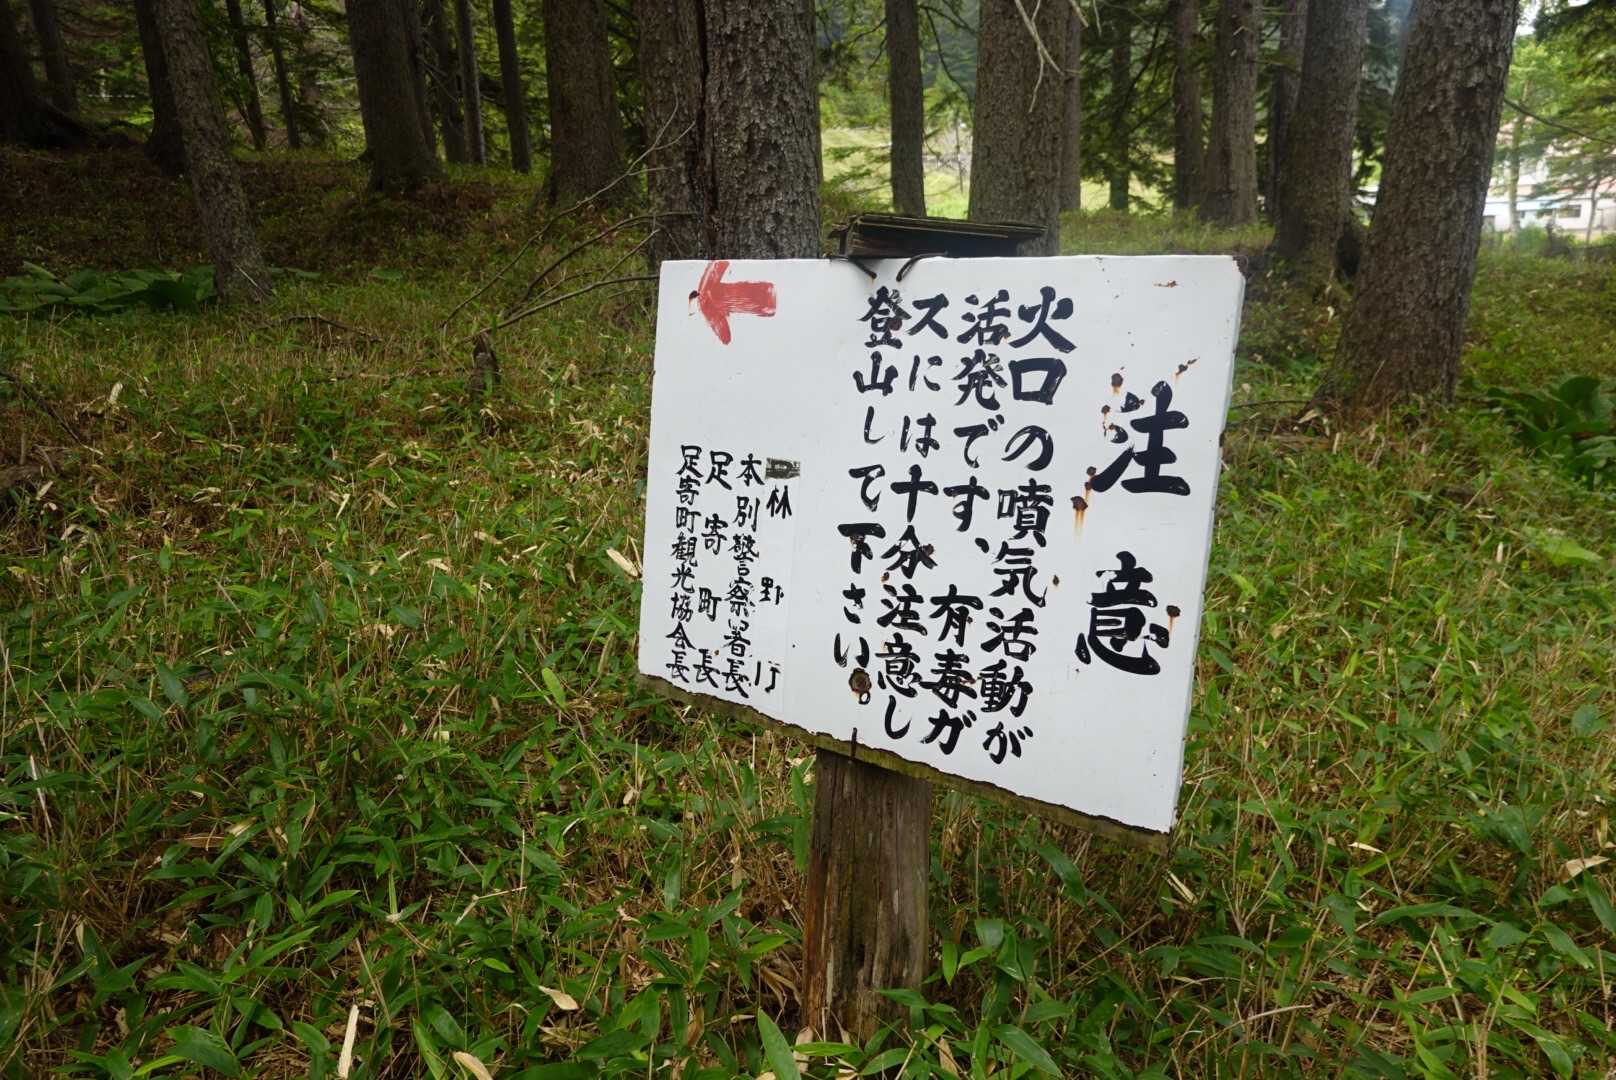 注意
火口の噴気活動が
活発です、有毒ガ
スには十分注意し
登山して下さい。
林野
本別警察署長
足寄町長
足寄町観光協会長